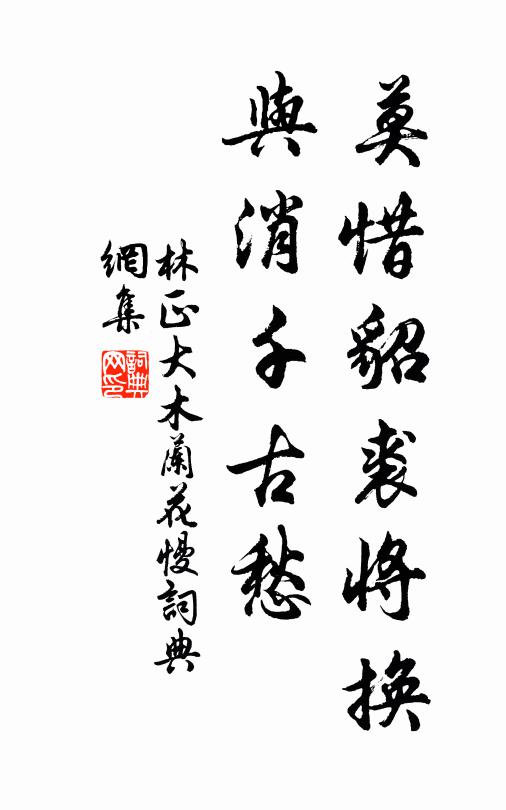 莫惜貂裘將換
與消千古愁
林正大木蘭花慢詞典
網集
詞典网印